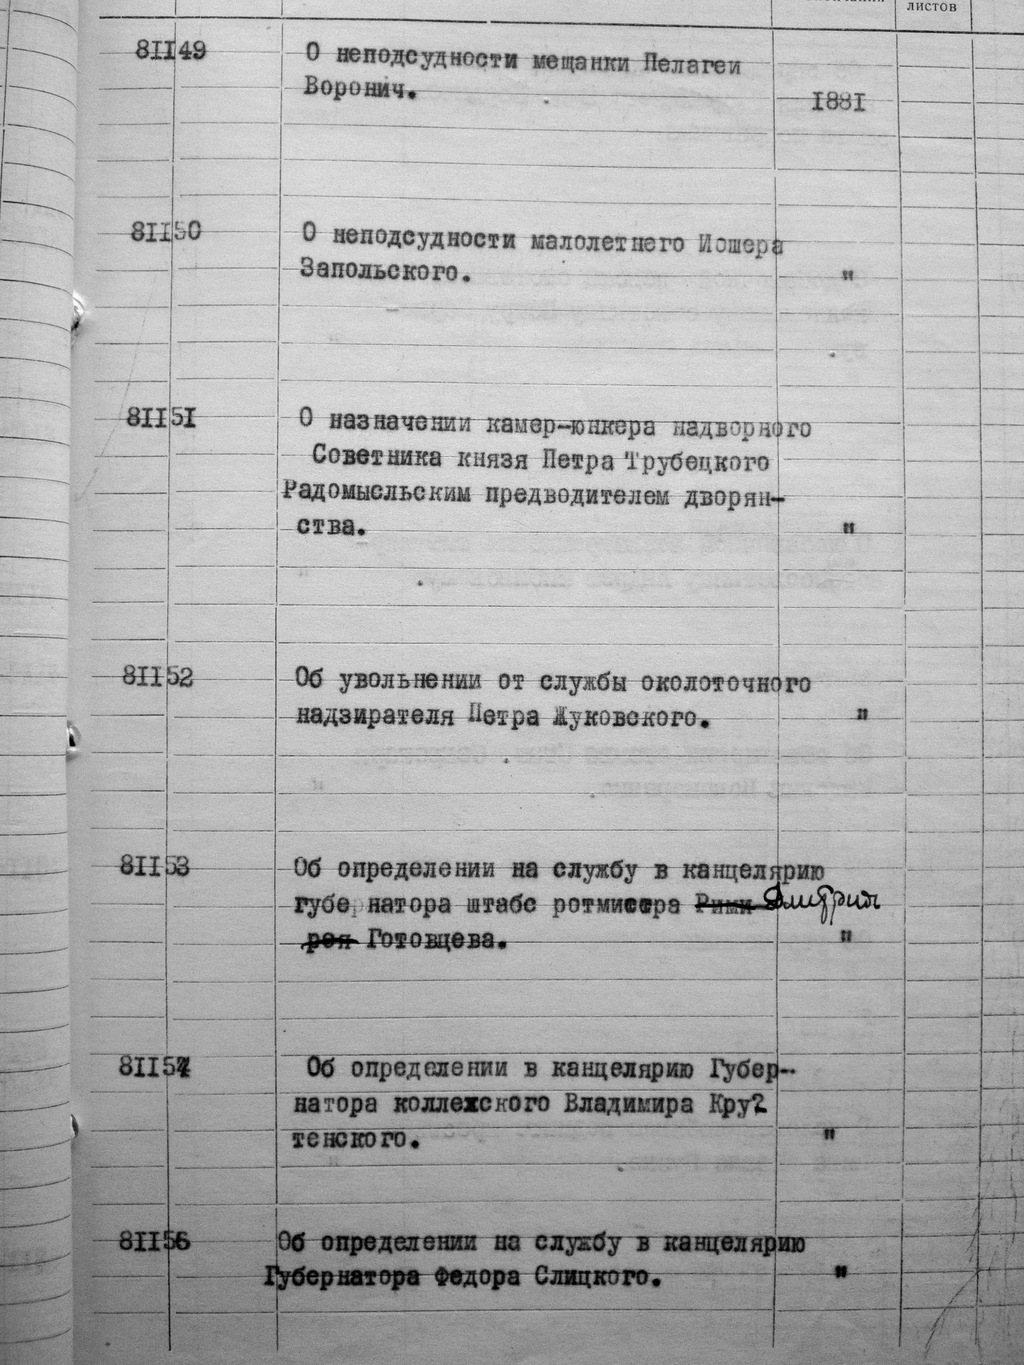 листов
81149 О неподсудности мещанки Пелагеи
Воронич.
1881
81150 О неподсудности малолетнего Иошера
Запольского. "
81151 О назначении камер-юнкера надворного
Советника князя Петра Трубецкого
Радомысльским предводителем дворян-
ства. "
81152 Об увольнении от службы околоточного
надзирателя Петра Жуковского. "
81153 Об определении на службу в канцелярию
губернатора штабс ротмистра Рими Дмитрия
рея Готовцева. "
8115 Об определении в канцелярию Губер-
натора коллежского Владимира Кру
тенского. "
81156 Об определении на службу в канцелярию
Губернатора Федора Слицкого. "